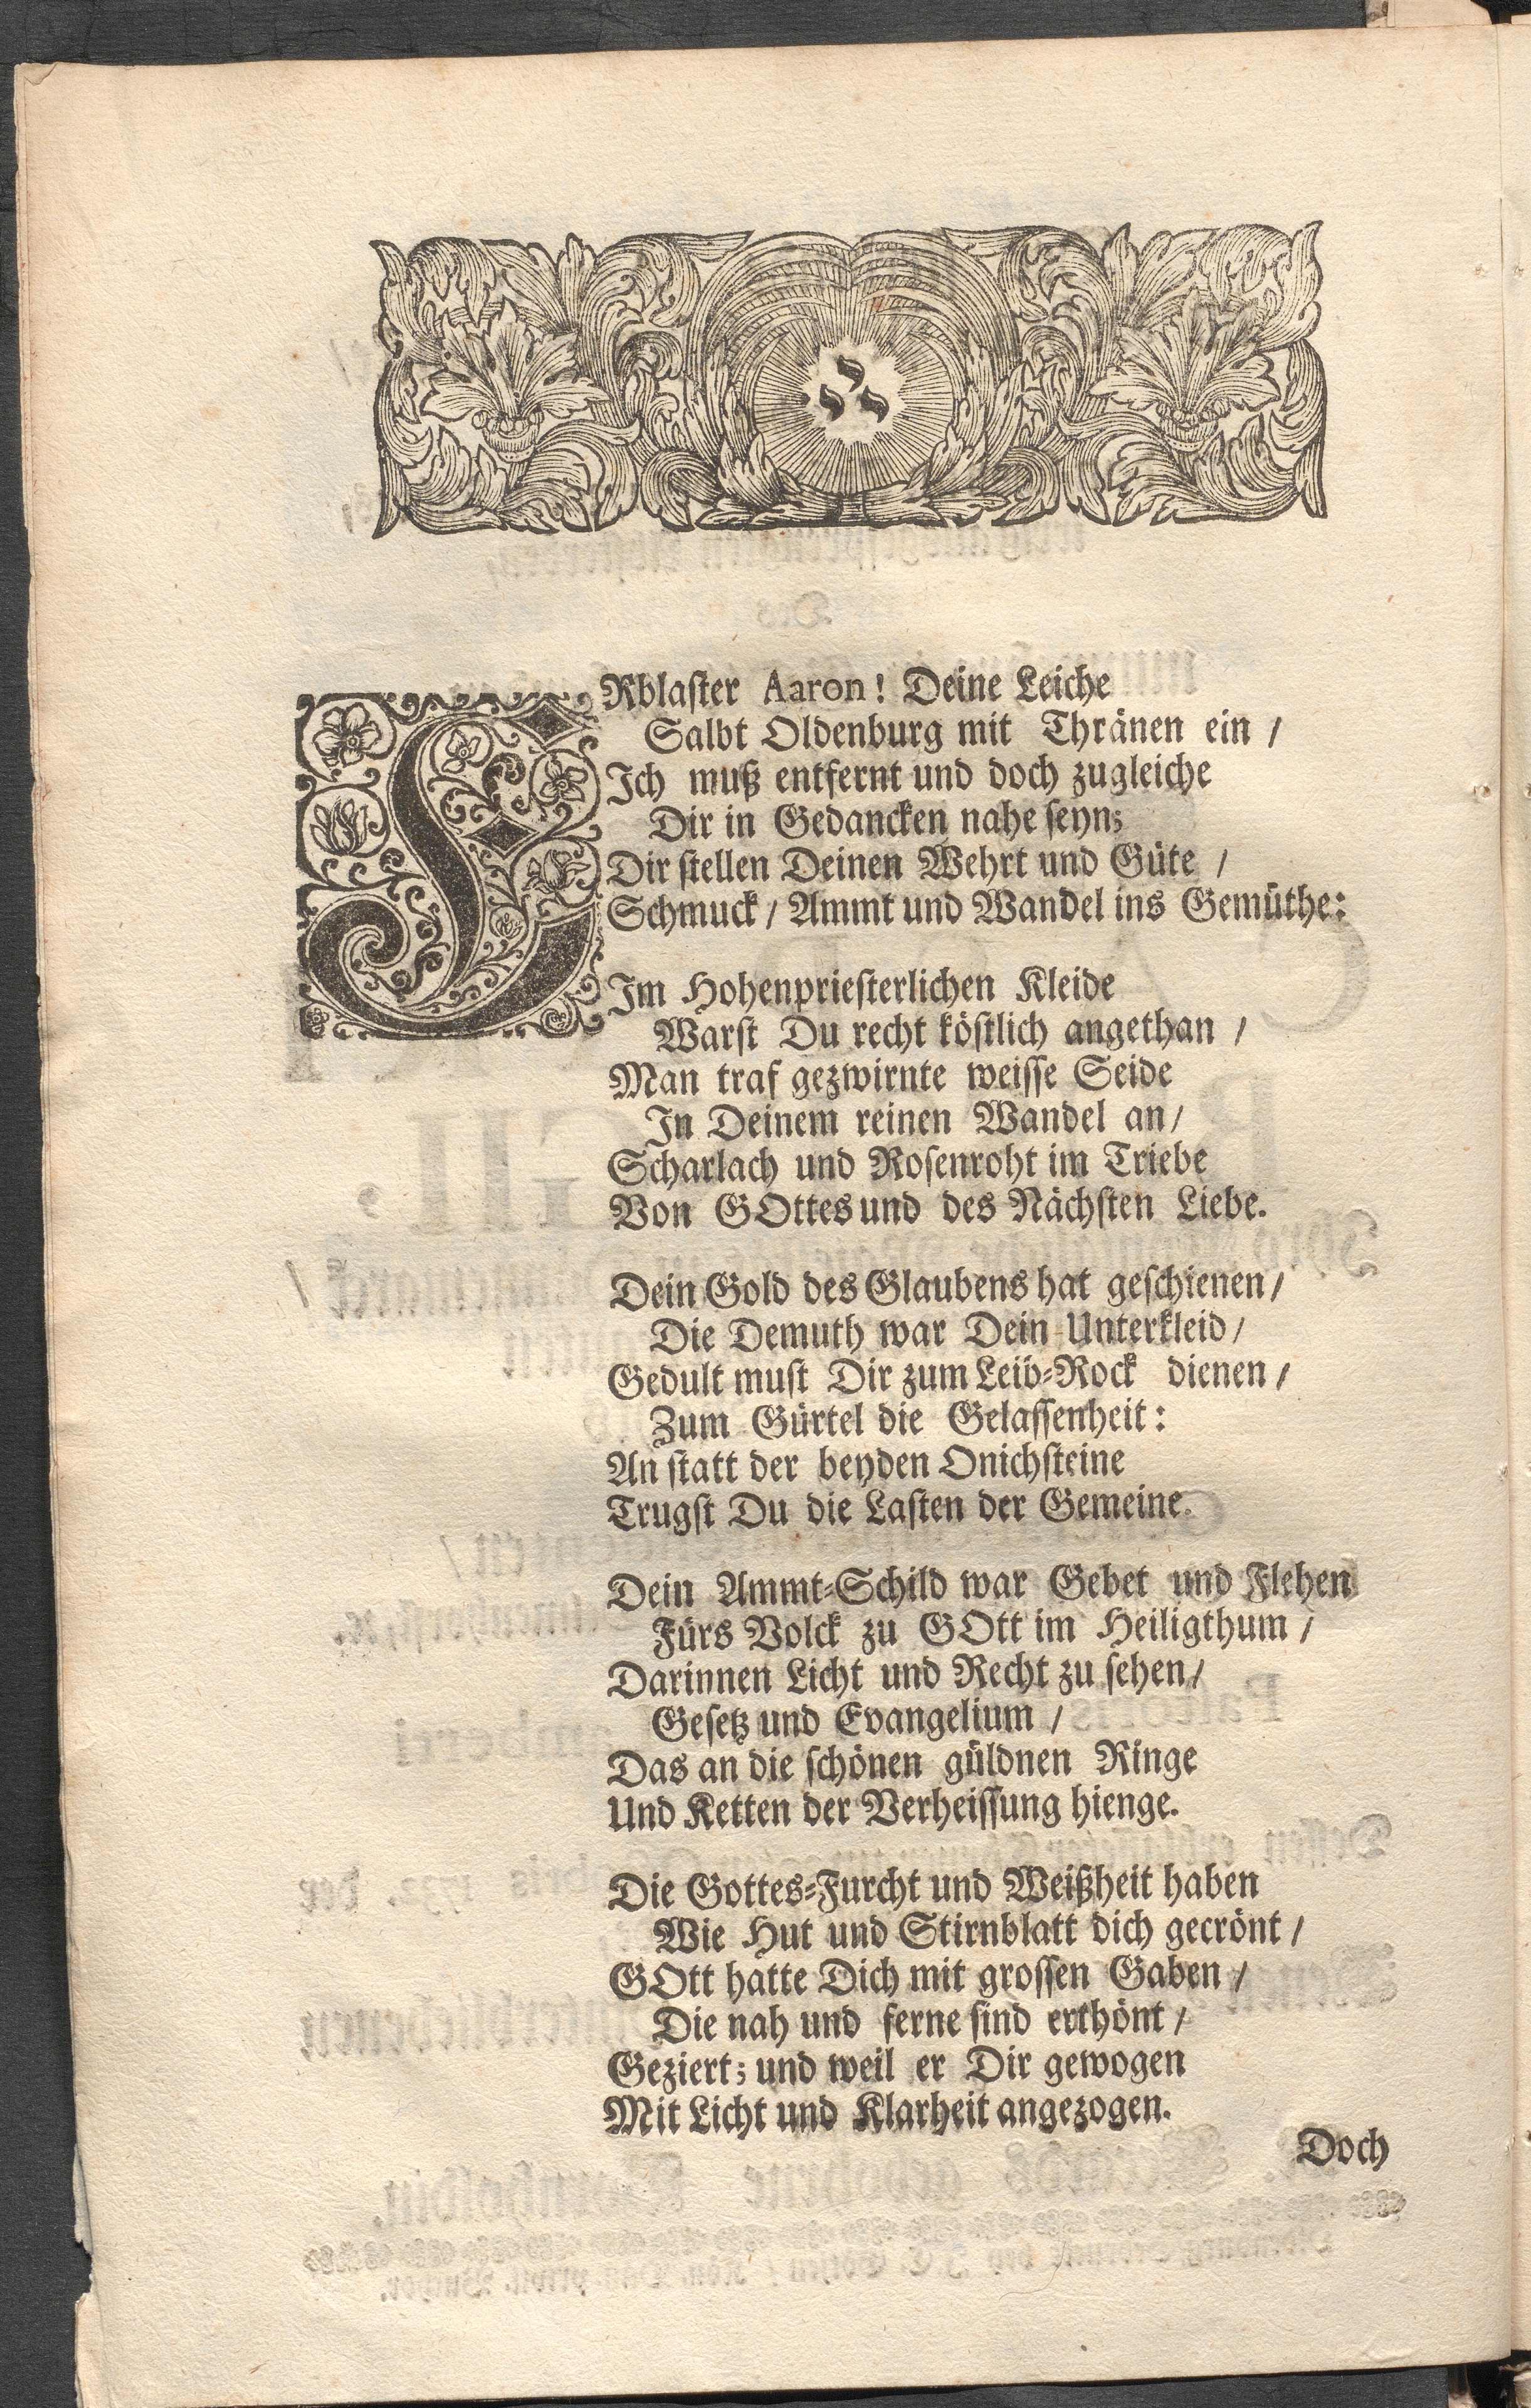 ERblaster Aaron! Deine Leiche
Salbt Oldenburg mit Thränen ein /
Ich muß entfernt und doch zugleiche
Dir in Gedancken nahe seyn;
Dir stellen Deinen Wehrt und Güte /
Schmuck / Ammt und Wandel ins Gemüthe:
Im Hohenpriesterlichen Kleide
Warst Du recht köstlich angethan /
Man traf gezwirnte weisse Seide
In Deinem reinen Wandel an /
Scharlach und Rosenroht im Triebe
Von GOttes und des Nächsten Liebe.
Dein Gold des Glaubens hat geschienen /
Die Demuth war Dein Unterkleid /
Gedult must Dir zum Leib-Rock dienen /
Zum Gürtel die Gelassenheit:
An statt der beyden Onichsteine
Trugst Du die Lasten der Gemeine.
Dein Ammt-Schild war Gebet und Flehen
Fürs Volck zu GOtt im Heiligthum /
Darinnen Licht und Recht zu sehen /
Gesetz und Evangelium /
Das an die schönen güldnen Ringe
Und Ketten der Verheissung hienge.
Die Gottes-Furcht und Weißheit haben
Wie Hut und Stirnblatt dich gecrönt /
GOtt hatte Dich mit grossen Gaben /
Die nah und ferne sind erthönt /
Geziert; und weil er Dir gewogen
Mit Licht und Klarheit angezogen.
Doch